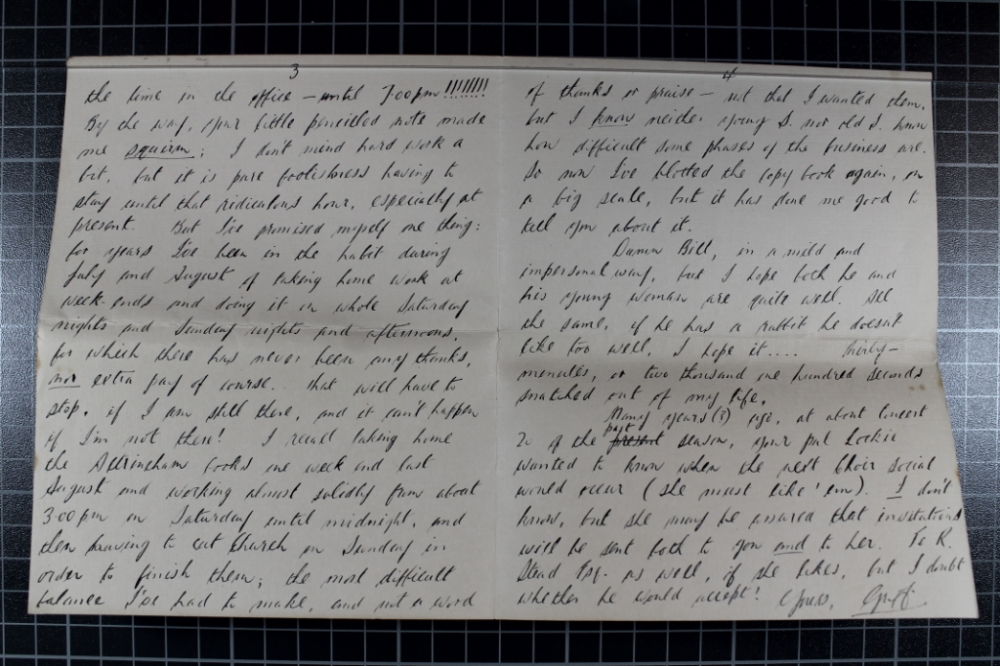 3
the time in the office – until 7.00pm !!!!!!!!
By the way, your little pencilled note made
me squirm; I don't mind hard work a
bit, but it is pure foolishness having to
stay until that ridiculous hour, especially at
present. But I've promised myself one thing:
for years I've been in the habit during
July and August of taking home work at
week-ends and doing it on whole Saturday
nights and Sunday nights and afternoons,
for which there has never been any thanks,
nor extra pay of course. That will have to
stop, if I am still there, and it can't happen
if I'm not there! I recall taking home
the Altrincham books one week end last
August and working almost solidly from about
3.00pm on Saturday until midnight, and
then having to cut church on Sunday in
order to finish them; the most difficult
balance I've had to make, and not a word
4
of thanks or praise – not that I wanted them,
but I know neither young S. nor old S. know
how difficult some phases of the business are.
So now I've blotted the copy book again, on
a big scale, but it has done me good to
tell you about it.
Damn Bill, in a mild and
impersonal way, but I hope both he and
his young woman are quite well. All
the same, if he has a rabbit he doesn't
like too well, I hope it.... thirty-
minutes, or two thousand one hundred seconds
snatched out of my life.
Many years (?) ago, at about Concert
2 of the present past season, your pal
wanted to know when the next Choir Social
would occur (she must like 'em). I don't
know, but she may be assured that invitations
will be sent both to you and to her. To R.
Stead Esq. as well, if she likes, but I doubt
whether he would accept! Yours,